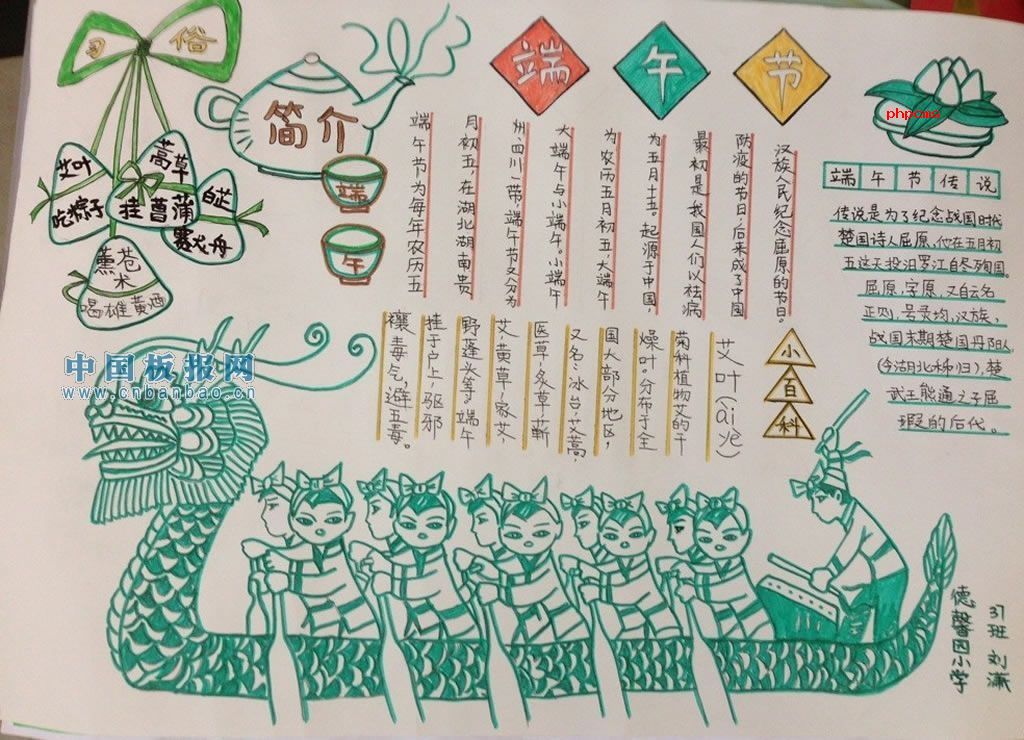 习俗
艾叶
蒿草
白芷
吃粽子
挂菖蒲
赛龙舟
苍术
喝雄黄酒
简介
端
午
端午节
端午节为每年农历五
月初五,在湖北湖南贵
州四川一带,端午节又分为
大端午与小端午。小端午
为农历五月初五,大端午
为五月十五。起源于中国,
最初是我国人们以祛病
防疫的节日,后来成了中国
汉族人民纪念屈原的节日。
phpcms
端午节传说
传说是为了纪念战国时代
楚国诗人屈原,他在五月初
五这天投汨罗江自尽殉国。
屈原,字原,又自云名
正则,号灵均,汉族,
战国末期楚国丹阳人
(今湖北秭归),楚
武王熊通之子屈
瑕的后代。
小百科
艾叶(ài yè)
菊科植物艾的干
燥叶。分布于全
国大部分地区,
又名:冰台,艾蒿,
医草,灸草,蕲
艾,黄草,家艾,
野蓬头等,端午
挂于户上,驱邪
禳毒气,避五毒。
中国板报网
www.cnbanbao.cn
37班 刘潇
德馨园小学